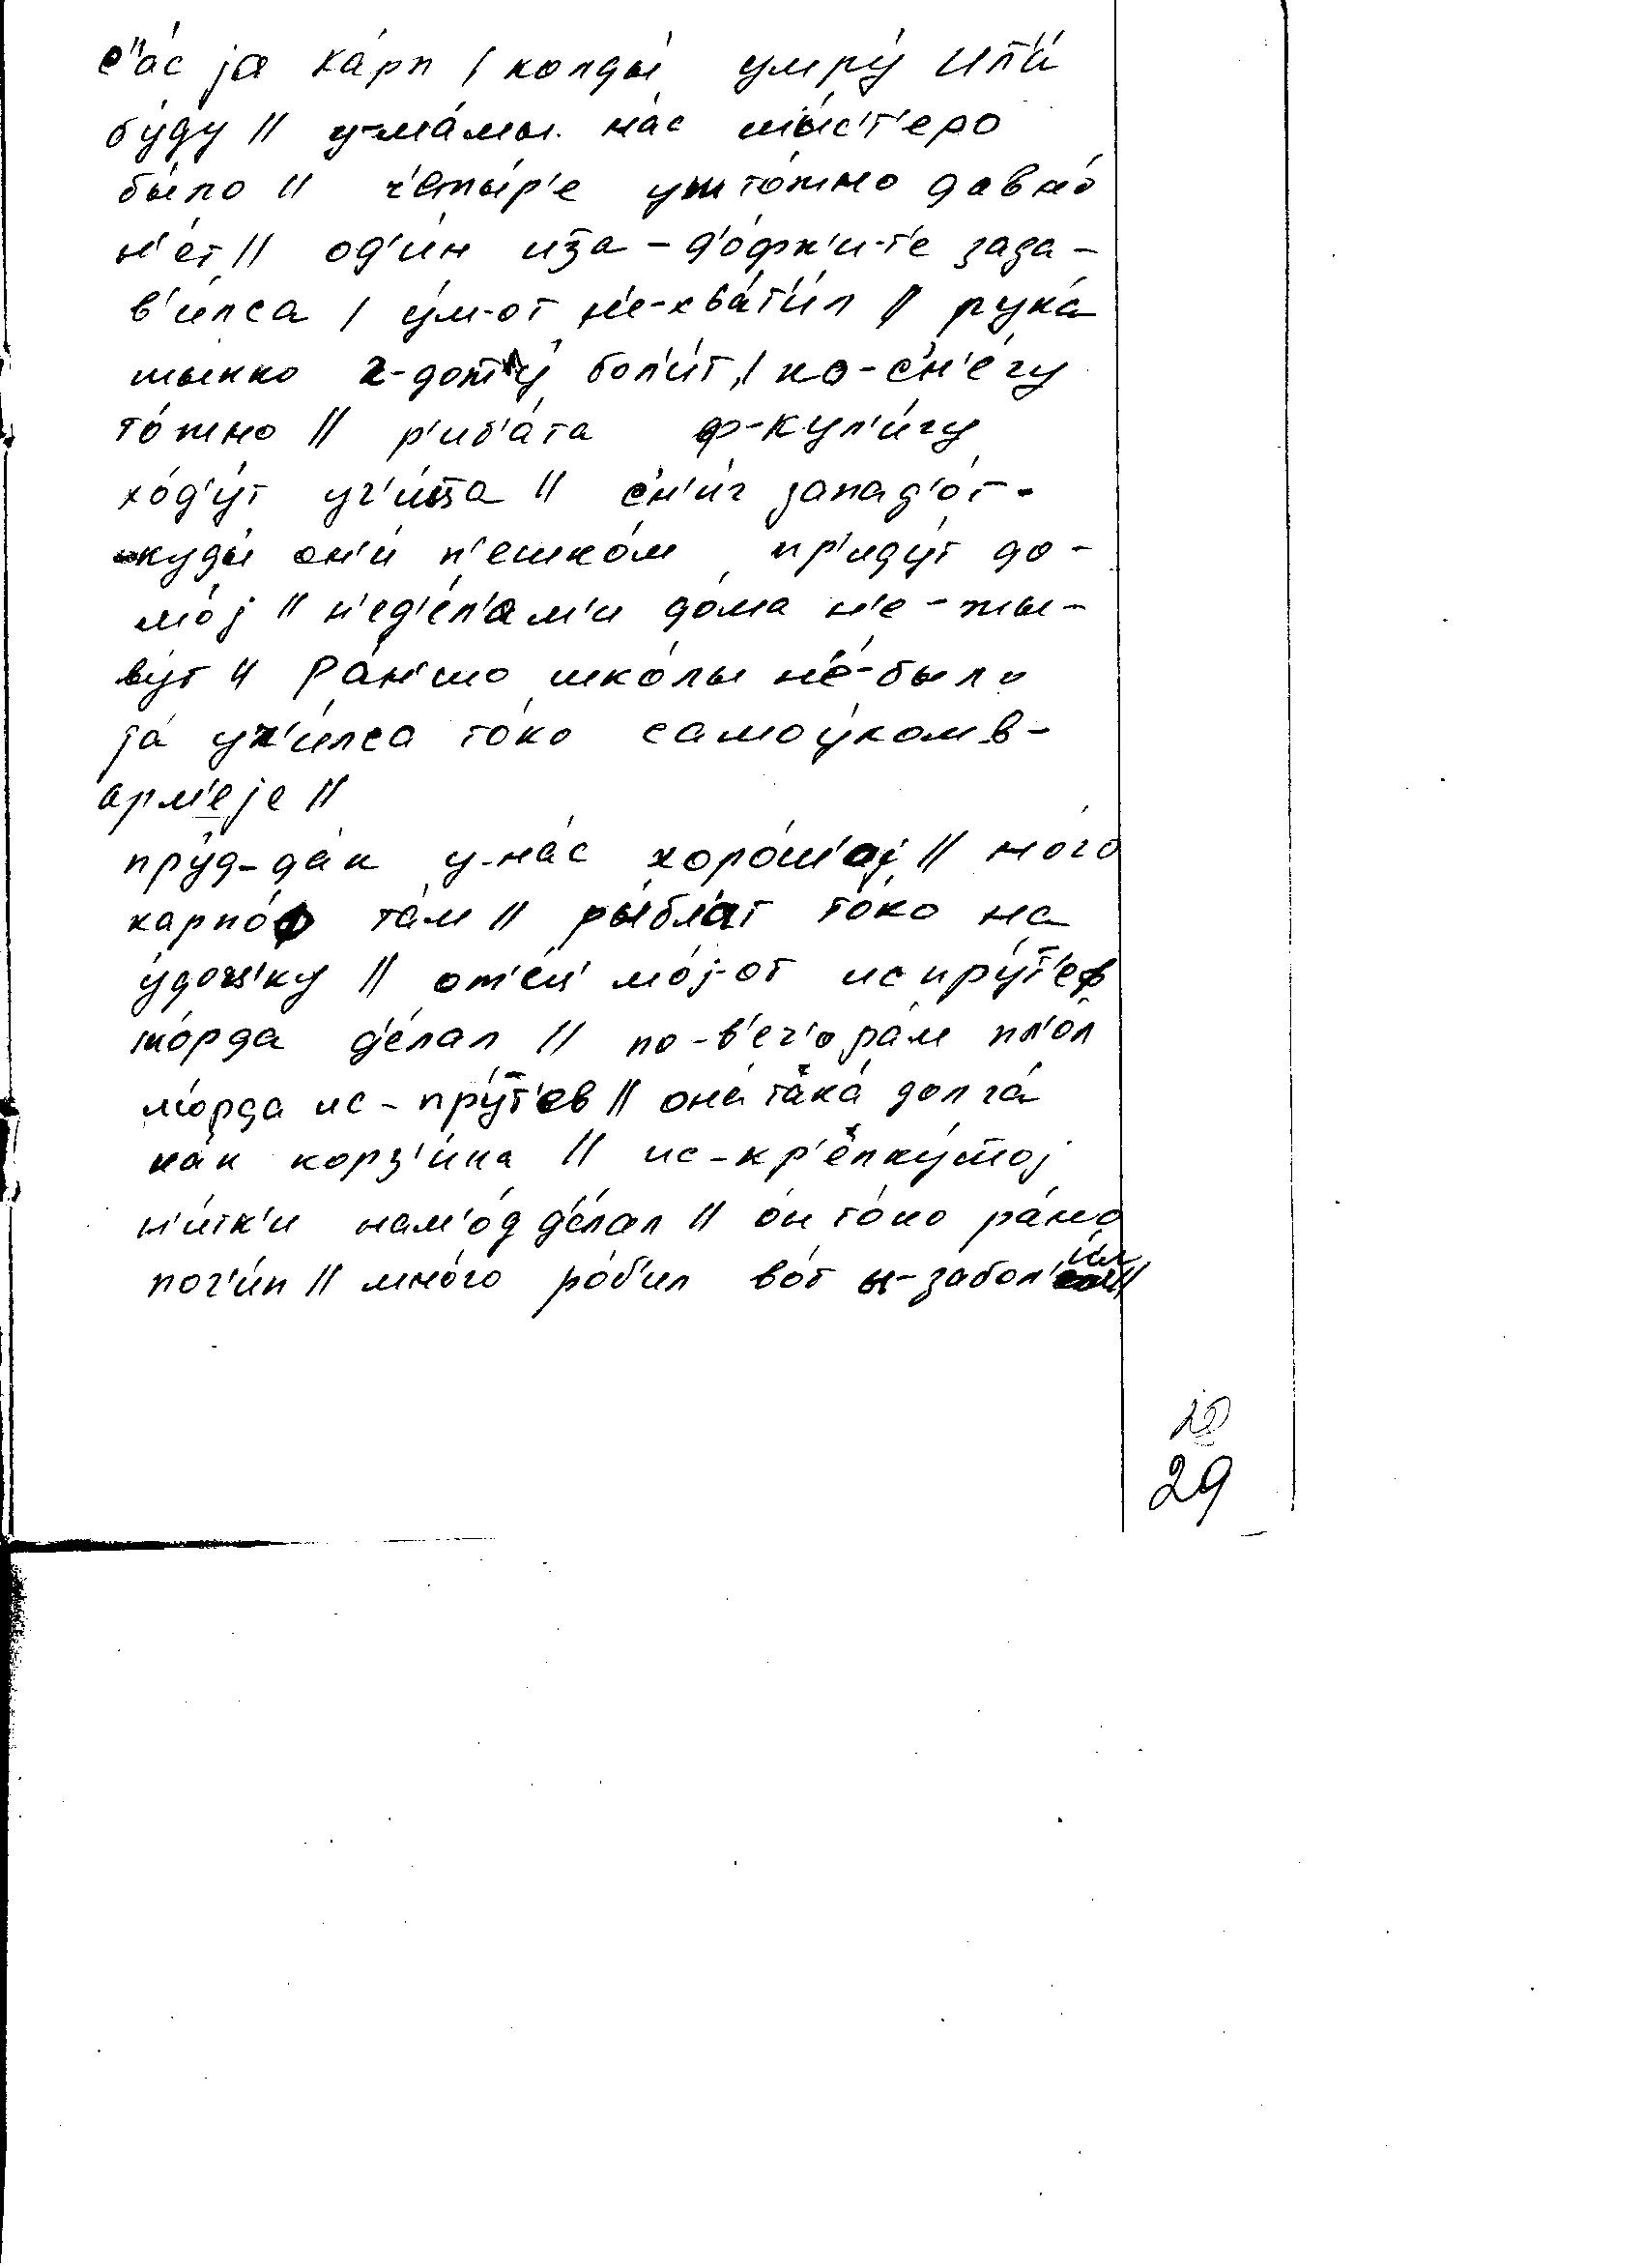 с'ӓ́с jа ка́рп /колды́ умру́ ил'и́
бу́ду // у-ма́мы нас шы́с'т'еро
бы́ло // ч'еты́р'е уш то́жно давно́
н'е́т // од'и́н иза-д'о́фк'и-т'е зада-
в'и́лса / у́м-от н'е-хва́т'и́л // рука́
шы́пко г-дожжу́ бол'и́т / ко-с'н'е́гу
то́жно // р'иб'а́та ф-кул'и́гу
хо́д'у́т уч'и́ца // с'н'и́г запад'о́т-
куды́ он'и́ п'ешко́м пр'иду́т до-
мо́j // н'ед'е́л'ам'и до́ма н'е-жы-
ву́т // ра́н'шо шко́лы н'е́-было
jа́ уч'и́лса то́ко самоу́ком в-
арм'еjе //
пру́д-да́к у-на́с хоро́ш'оj // но́го
карпо́ф та́м // ры́бл'ат то́ко на
у́доч'ку // от'е́ц мо́j-от ис пру́т'еф
мо́рда д'е́лал // по-в'еч'ора́м пл'о́л
мо́рда ис-пру́т'ев // она́ така́ долга́
ка́к корз'и́на // ис-кр'епку́шшоj
н'и́тк'и нам'о́д д'е́лал // о́н то́ко ра́но
пог'и́п // мно́го ро́б'ил во́т ы-забол'и́л //
29